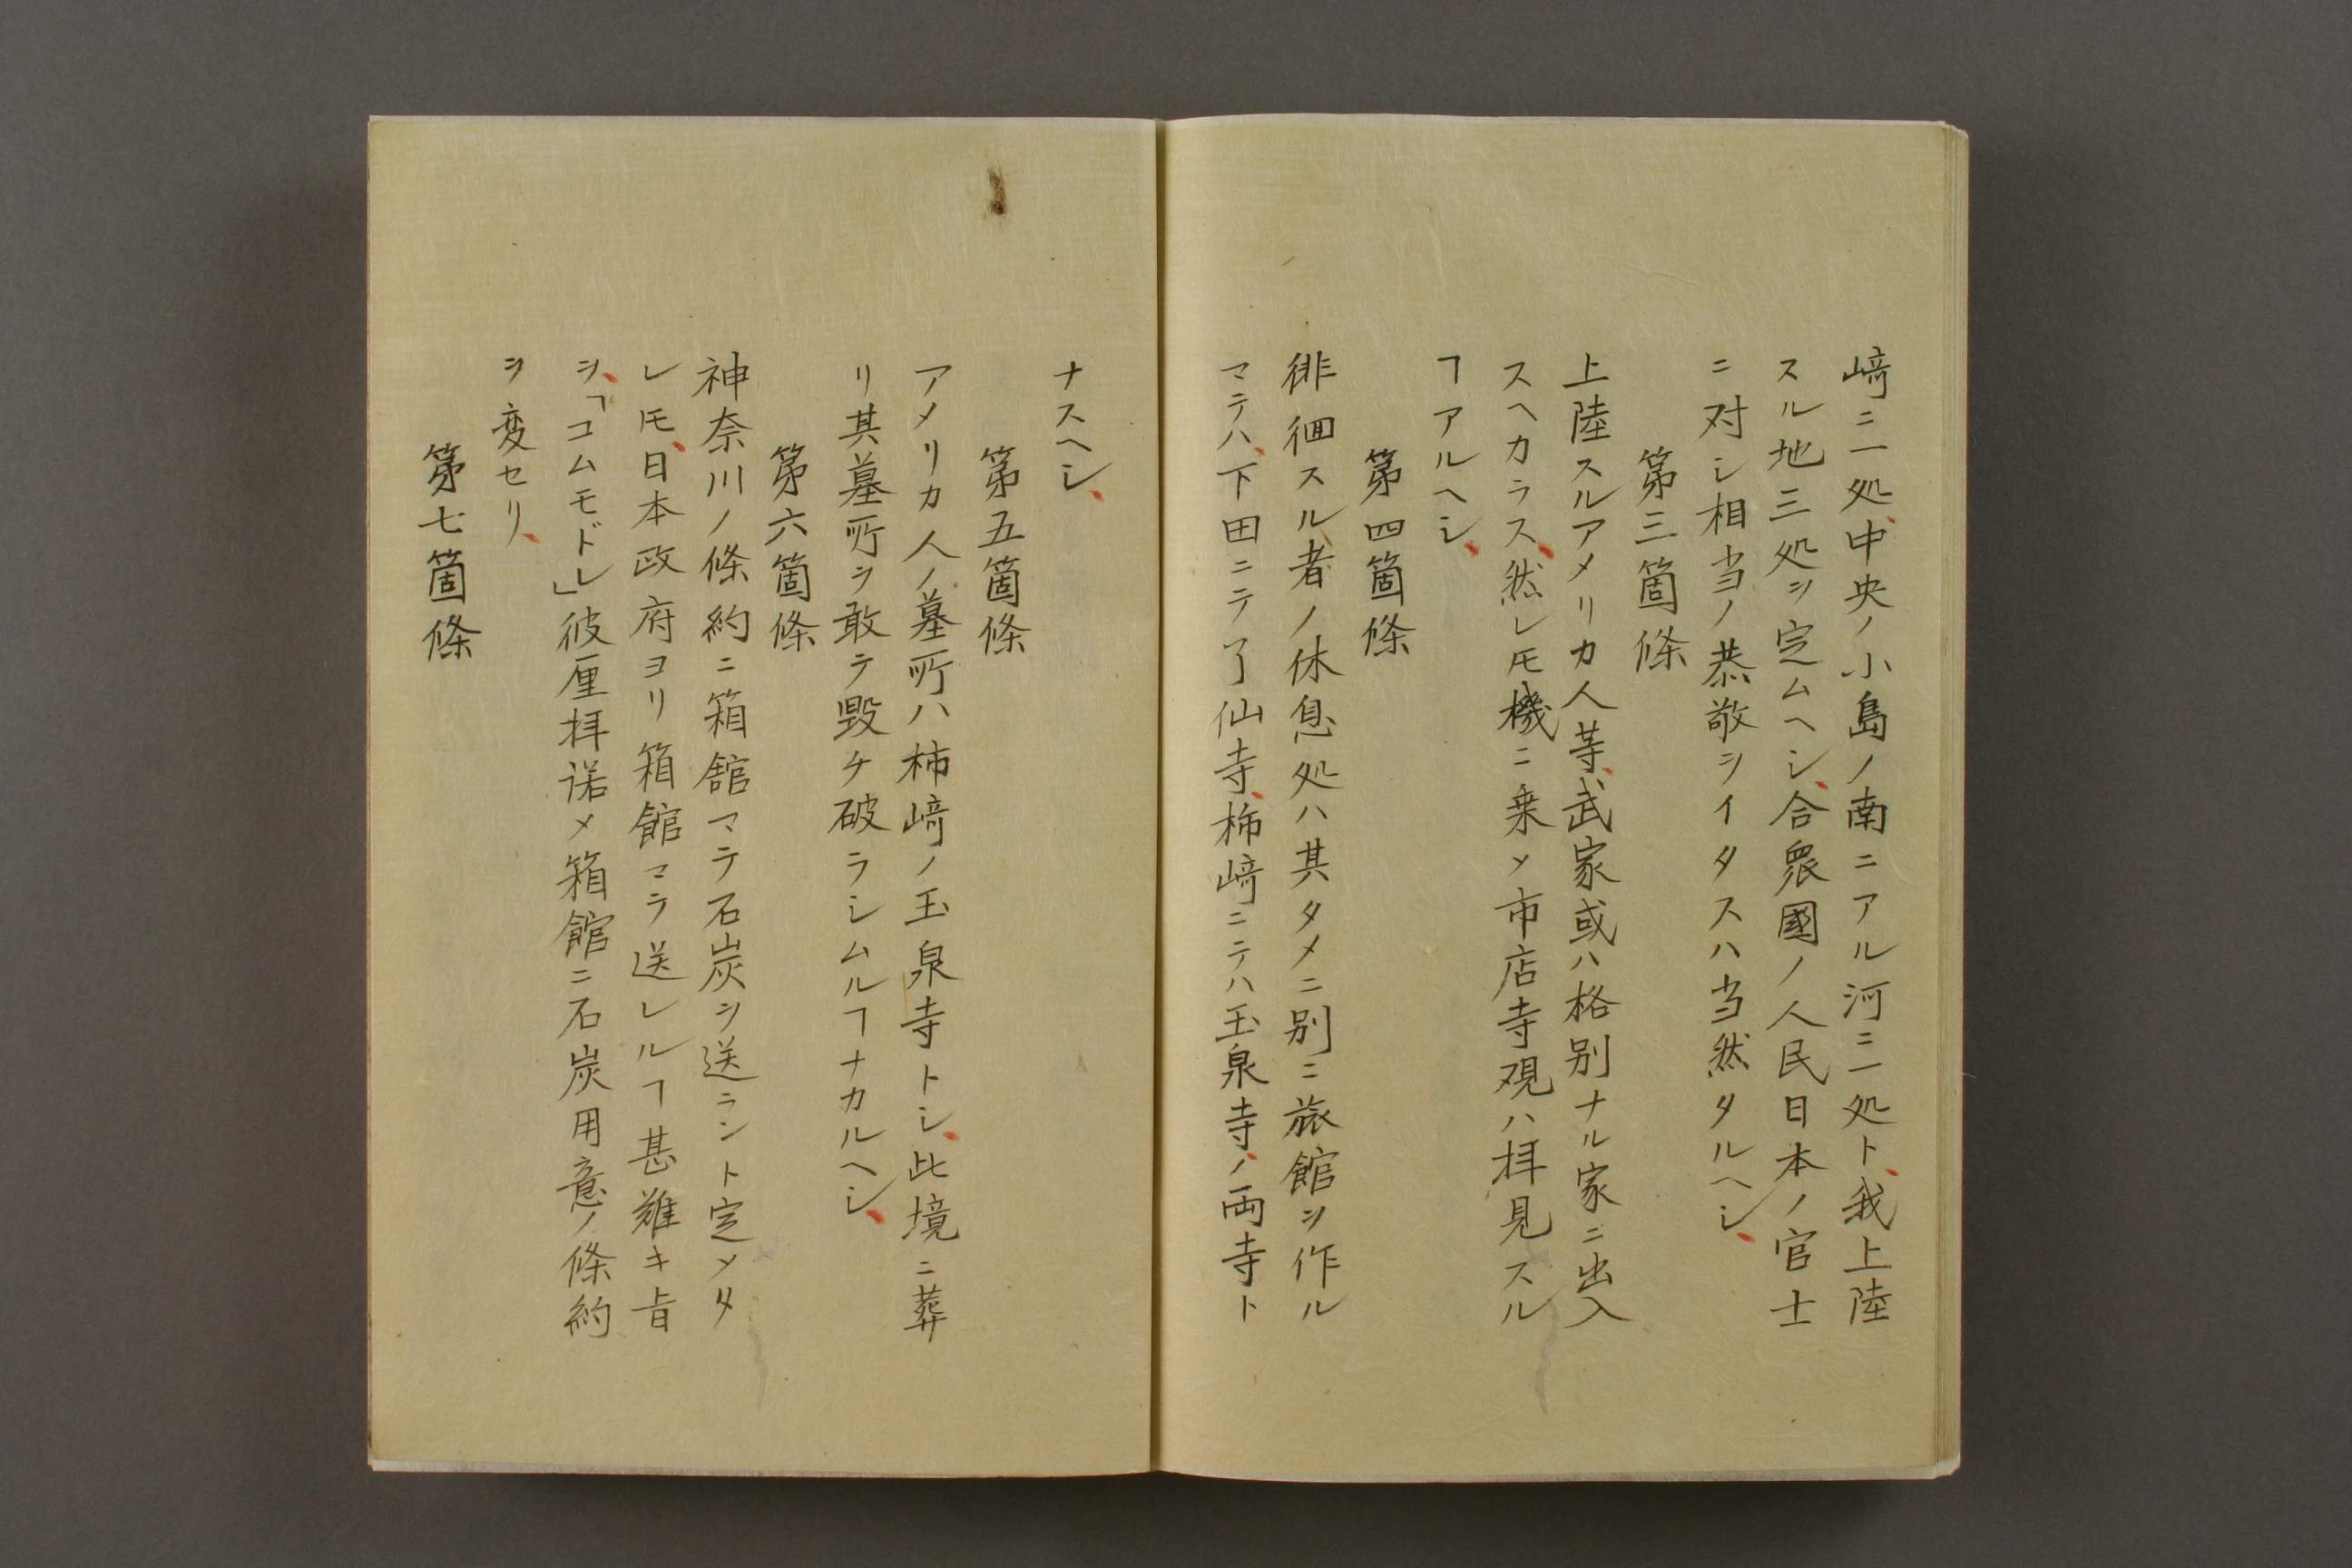 﨑ニ一処、中央ノ小島ノ南ニアル河ニ一処ト、我上陸
スル地三処ヲ定ムヘシ、合衆國ノ人民日本ノ官士
ニ対シ相当ノ恭敬ヲイタスハ当然タルヘシ、
第三箇條
上陸スルアメリカ人等、武家或ハ格別ナル家ニ出入
スヘカラス、然レ𪜈機ニ乗メ市店寺観ハ拝見スル
ヿアルヘシ、
第四箇條
徘徊スル者ノ休息処ハ其タメニ別ニ旅館ヲ作ル
マテハ、下田ニテ了仙寺、柿﨑ニテハ玉泉寺ノ両寺ト
ナスヘシ、
第五箇條
アメリカ人ノ墓所ハ柿﨑ノ玉泉寺トシ、此境ニ葬
リ其墓所ヲ敢テ毀チ破ラシムルヿナカルヘシ、
第六箇條
神奈川ノ條約ニ箱舘マテ石炭ヲ送ラント定メタ
レ𪜈、日本政府ヨリ箱館マテ送レルヿ甚難キ旨
ヲ、「コムモドレ」彼厘拝諾メ箱館ニ石炭用意ノ條約
ヲ変セリ、
第七箇條